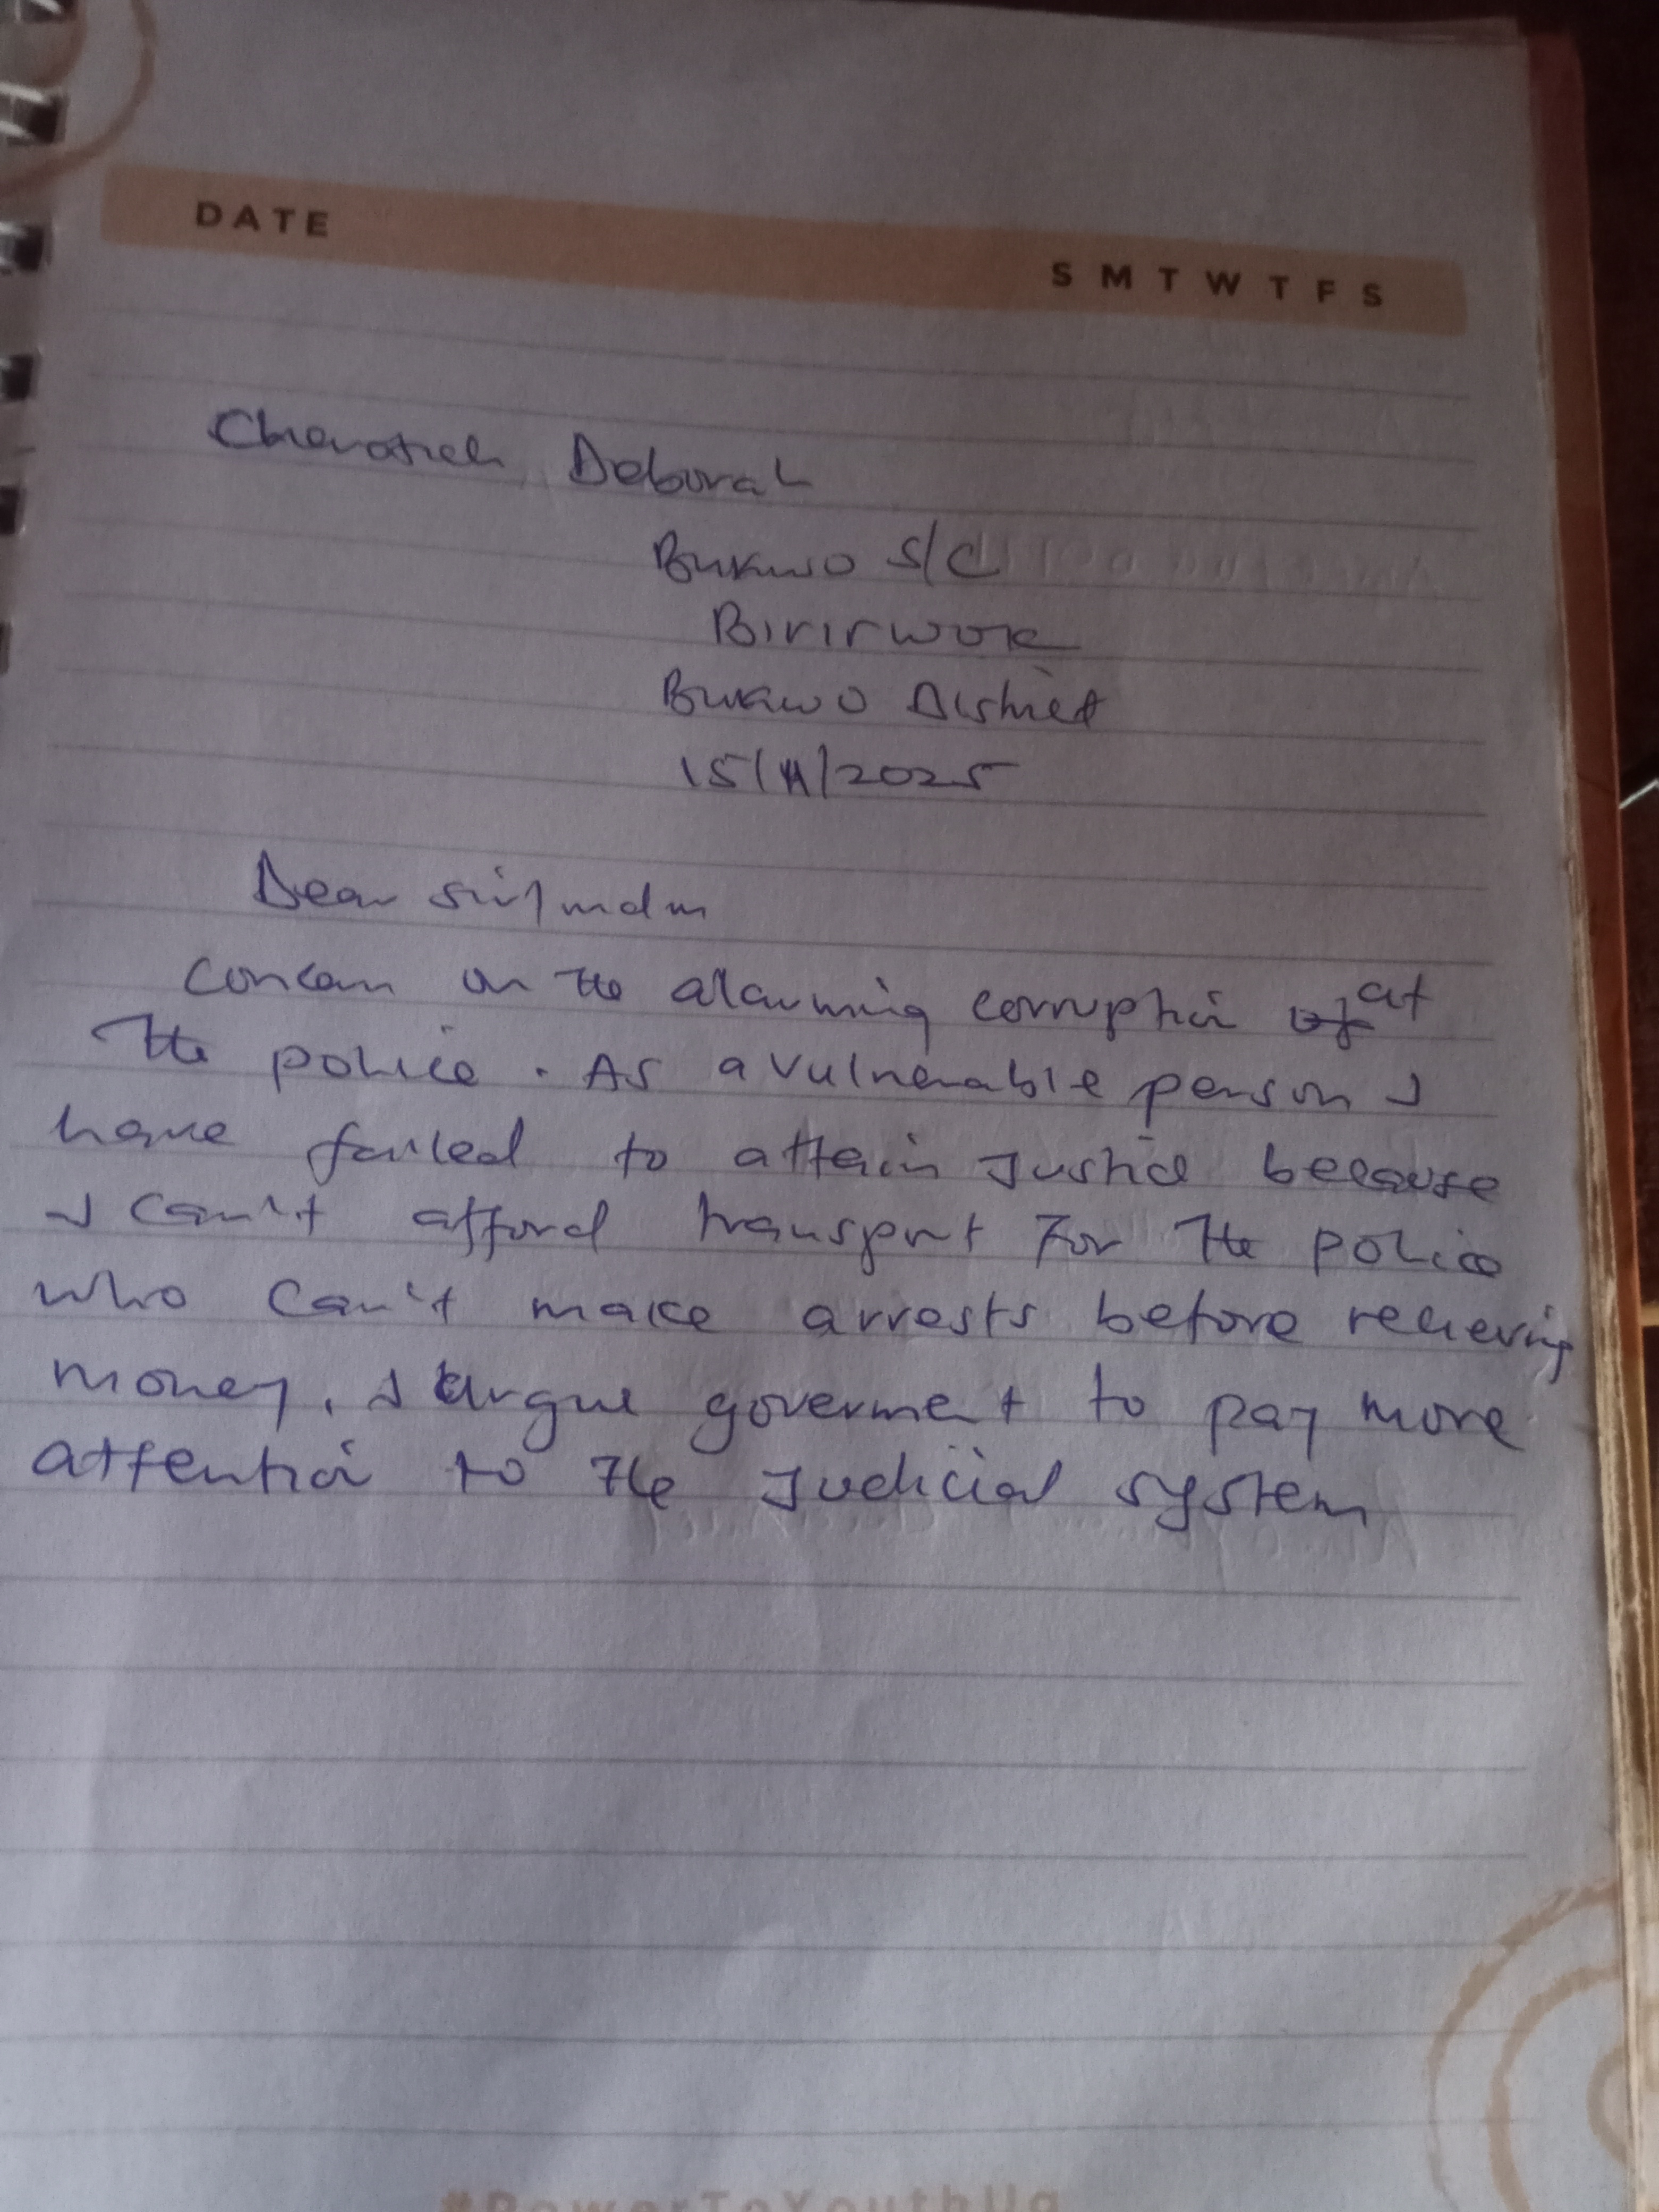 DATE
S M T W T F S
Deborah
Bukwo S/C
Birirwok
Bukwo District
15/11/2025
Dear sir/mdm
Concern on the alarming corruption of at
the police. As a vulnerable person I
have failed to attain Justice because
I can't afford transport For the police
who can't make arrests before recieving
money. I urgue goverment to pay more
attention to the Judicial system
#PowerToYouthUg